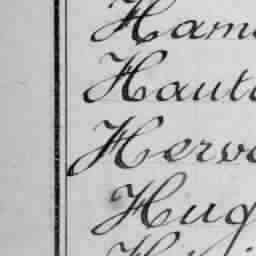 Ham
Haut
Herv
Hug